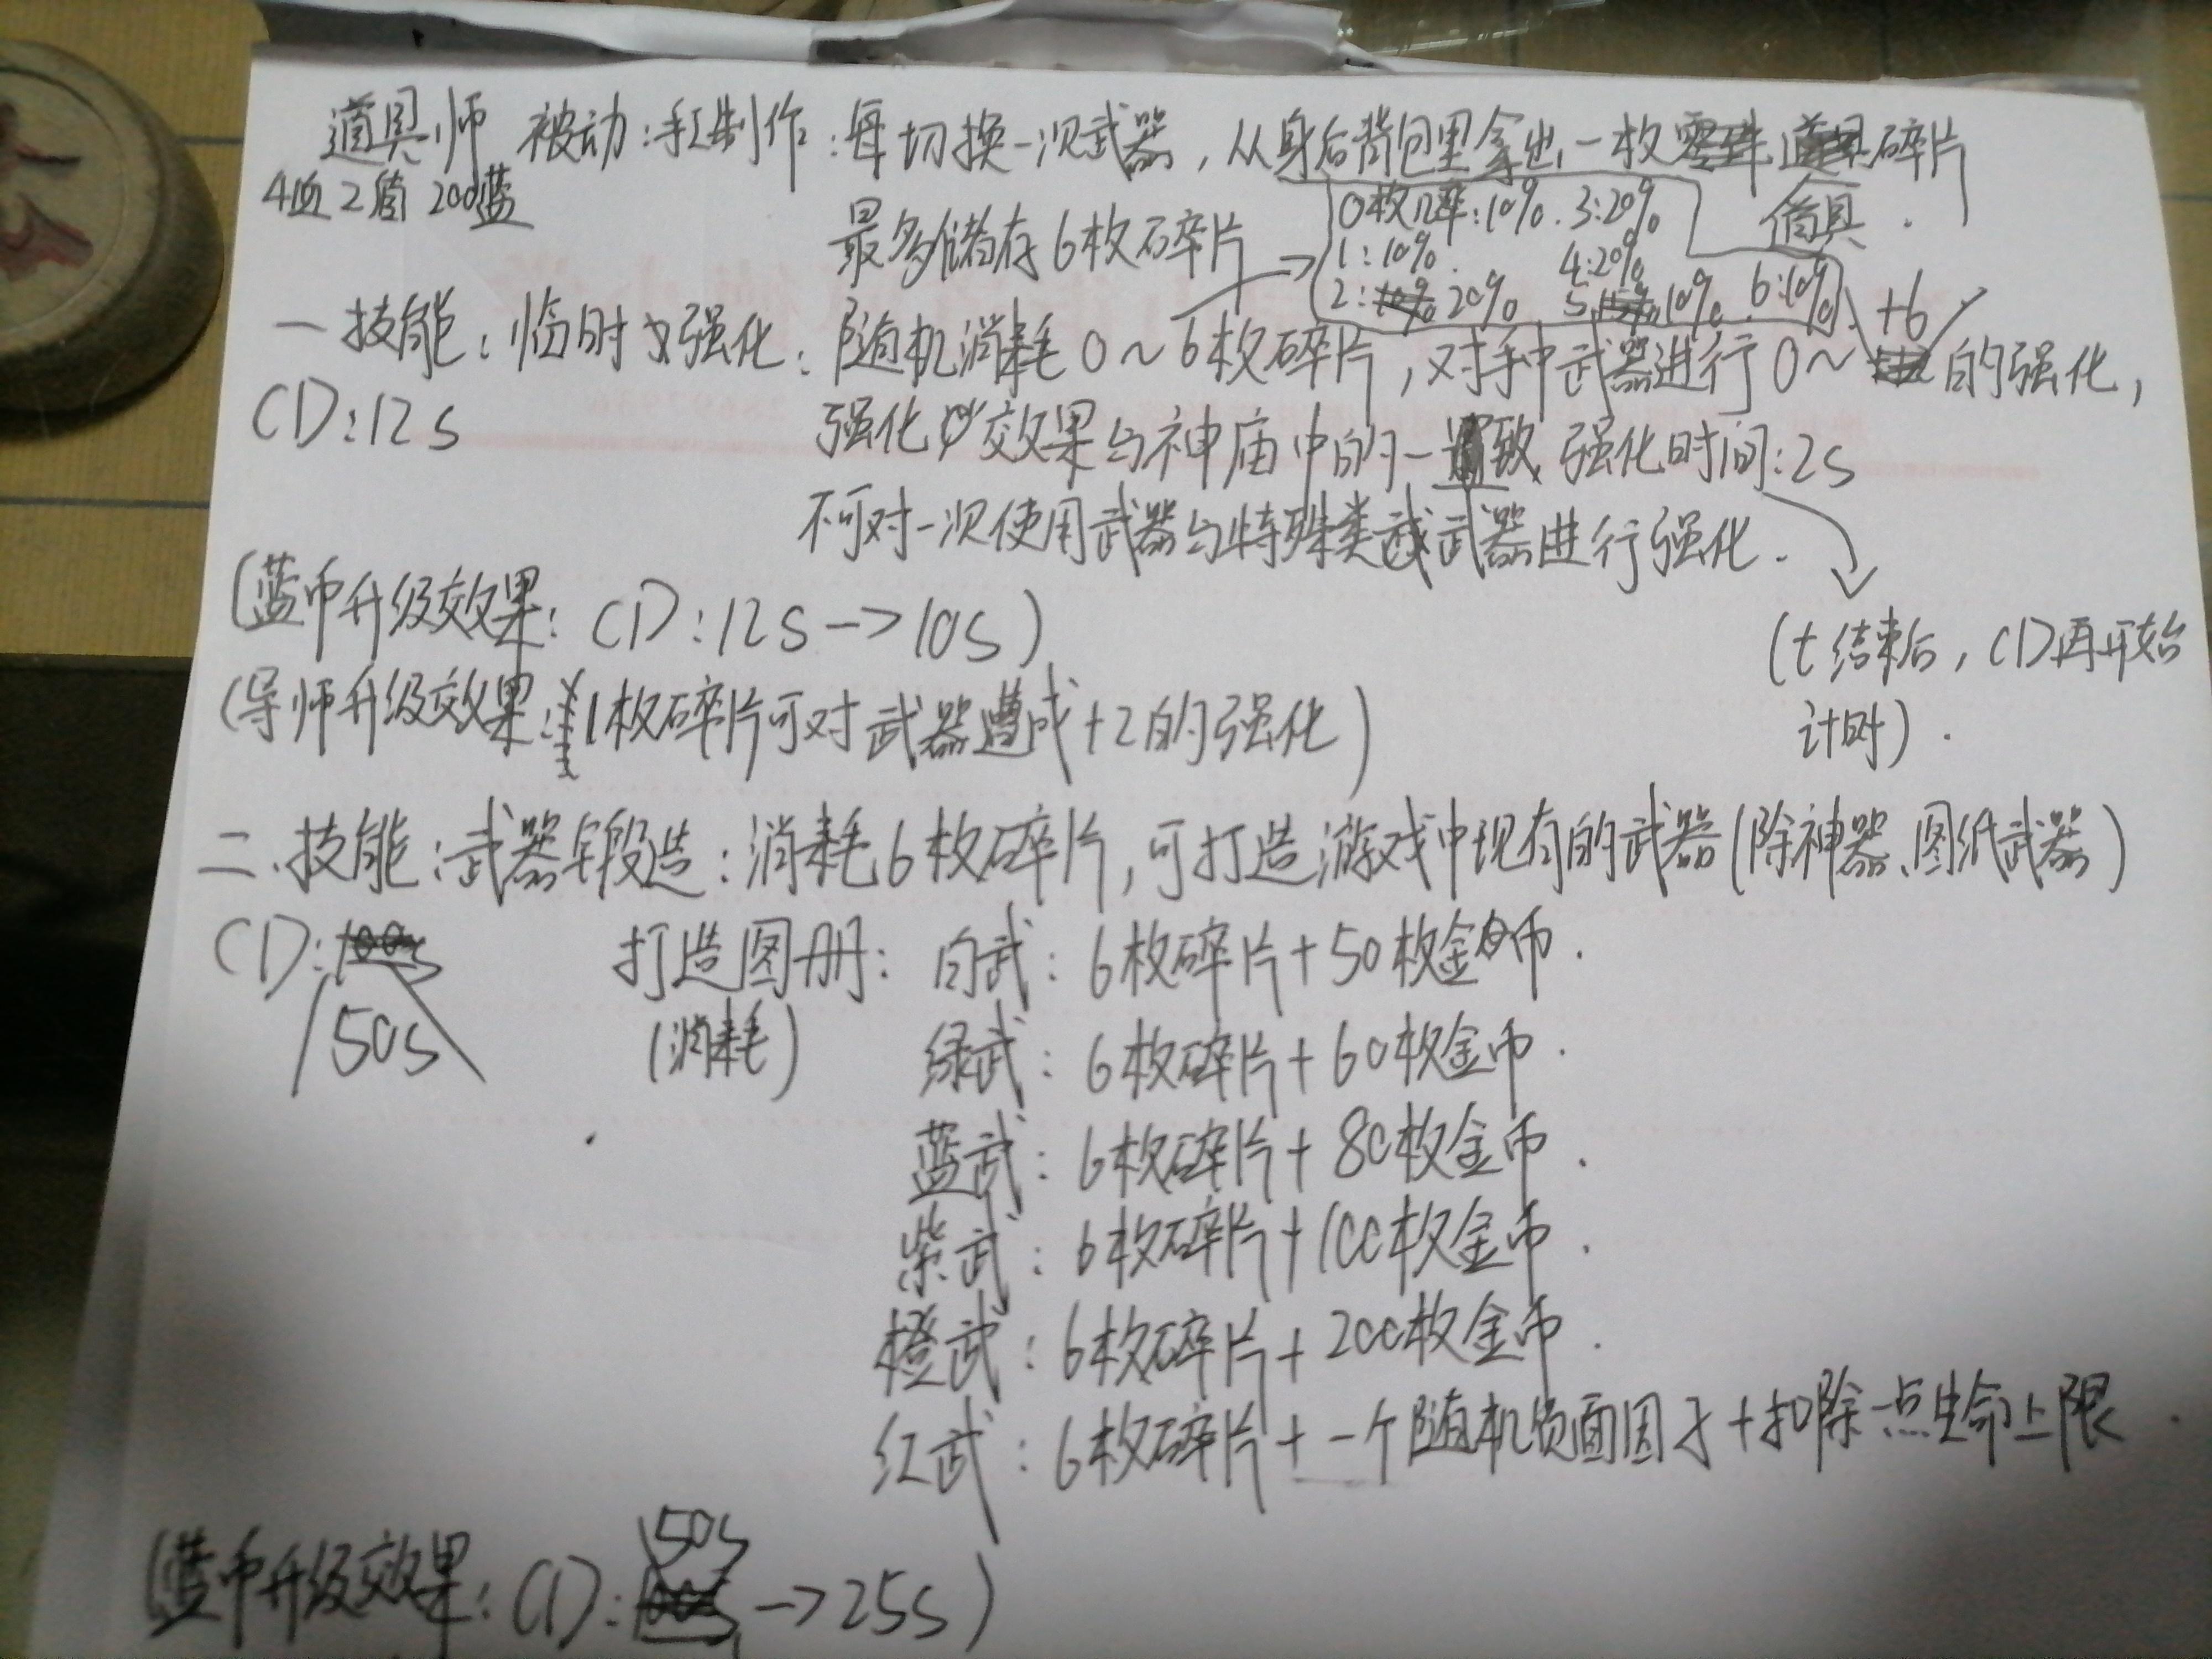 道具师 被动:手工制作:每切换一次武器,从身后背包里拿出一枚道具碎片
4血 2盾 200蓝
最多储存6枚碎片
0枚几率:10%. 3:20%
1:10%. 4:20%
2:20% 5:10% 6:10%
道具.
一技能:临时强化:随机消耗0~6枚碎片,对手中武器进行0~+6的强化,
CD:12s
强化效果与神庙中的一致,强化时间:2s
不可对一次使用武器与特殊类武器进行强化.
(t结束后,CD再开始
计时).
(蓝币升级效果:CD:12s->10s)
(导师升级效果:1枚碎片可对武器遭成+2的强化)
二.技能:武器锻造:消耗6枚碎片,可打造游戏中现有的武器(除神器、图纸武器)
CD:50s
打造图册:白武:6枚碎片+50枚金币.
(消耗)
绿武:6枚碎片+60枚金币.
蓝武:6枚碎片+80枚金币.
紫武:6枚碎片+100枚金币.
橙武:6枚碎片+200枚金币.
红武:6枚碎片+一个随机负面因子+扣除一点生命上限.
(蓝币升级效果:CD:50s->25s)